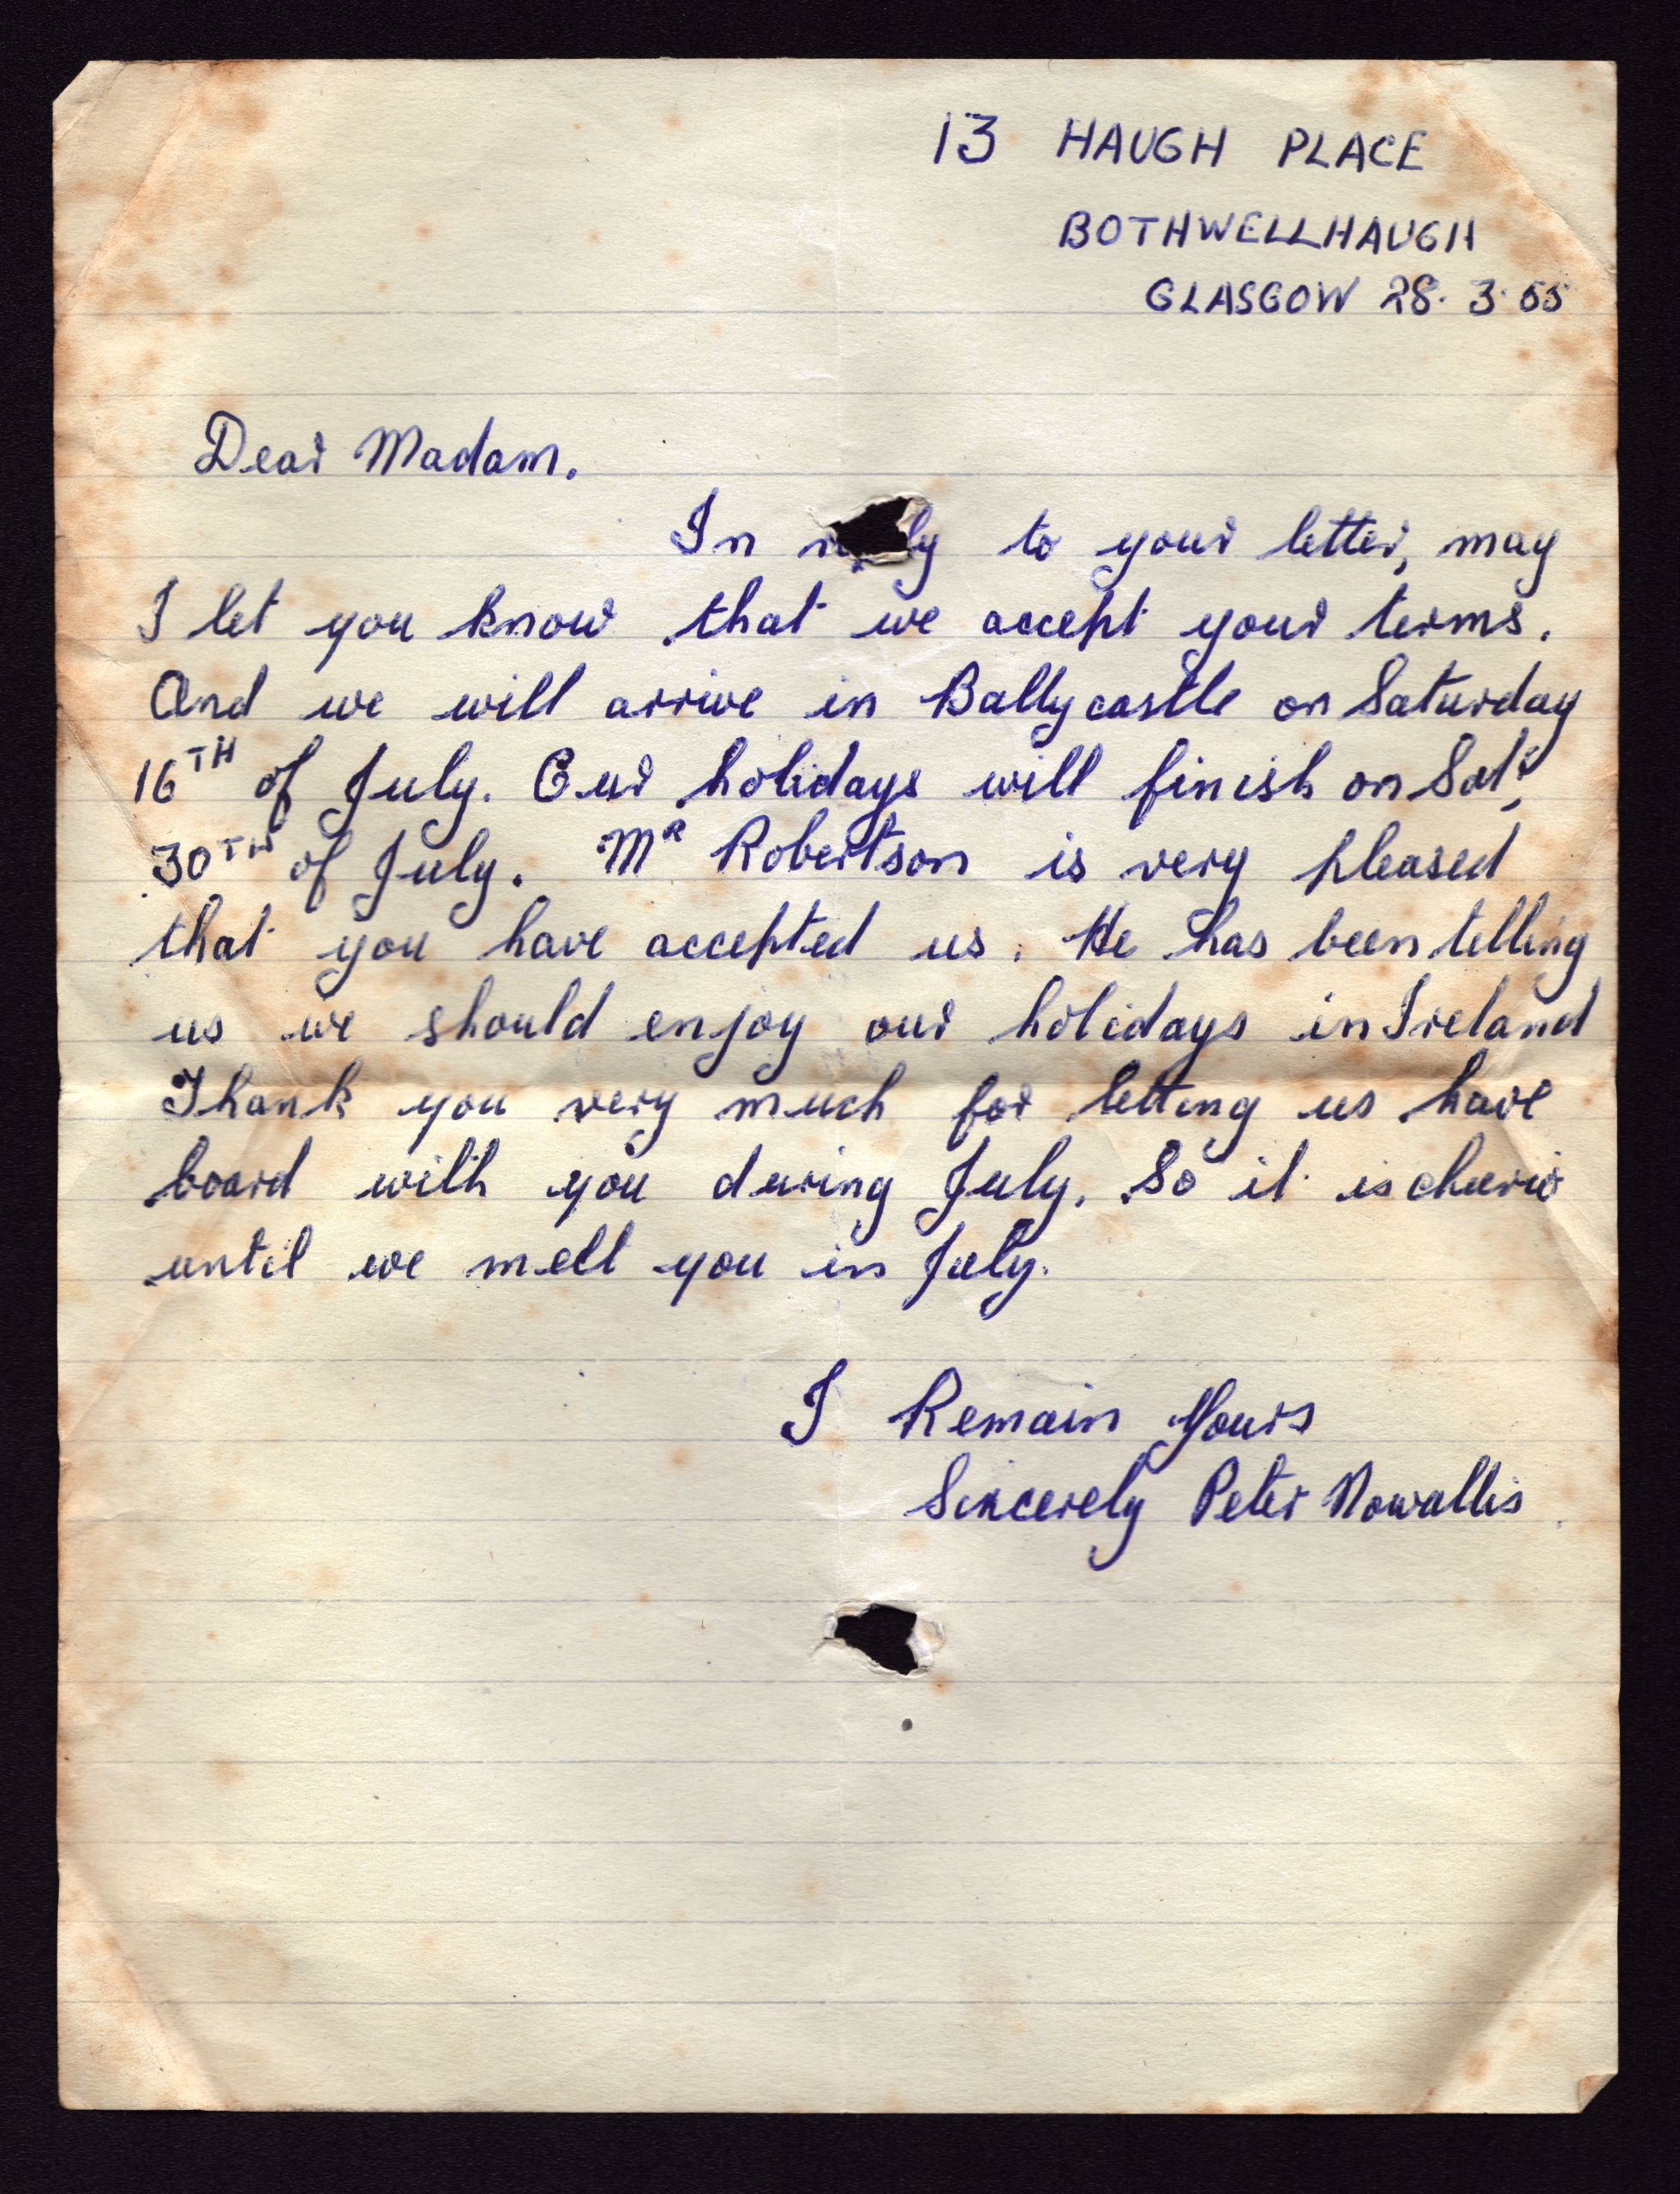 13 HAUGH PLACE
BOTHWELLHAUGH
GLASGOW 28. 3. 55
Dear Madam.
In to your letter, may
I let you know that we accept your terms.
And we will arrive in Ballycastle on Saturday
16TH of July. Our holidays will finish on Sat;
30TH of July. MR Robertson is very pleased
that you have accepted us. He has been telling
us we should enjoy our holidays in Ireland
Thank you very much for letting us have
board with you during July. So it is cheerio
until we meet you in July.
I Remain Yours
Sincerely Peter Nowallis